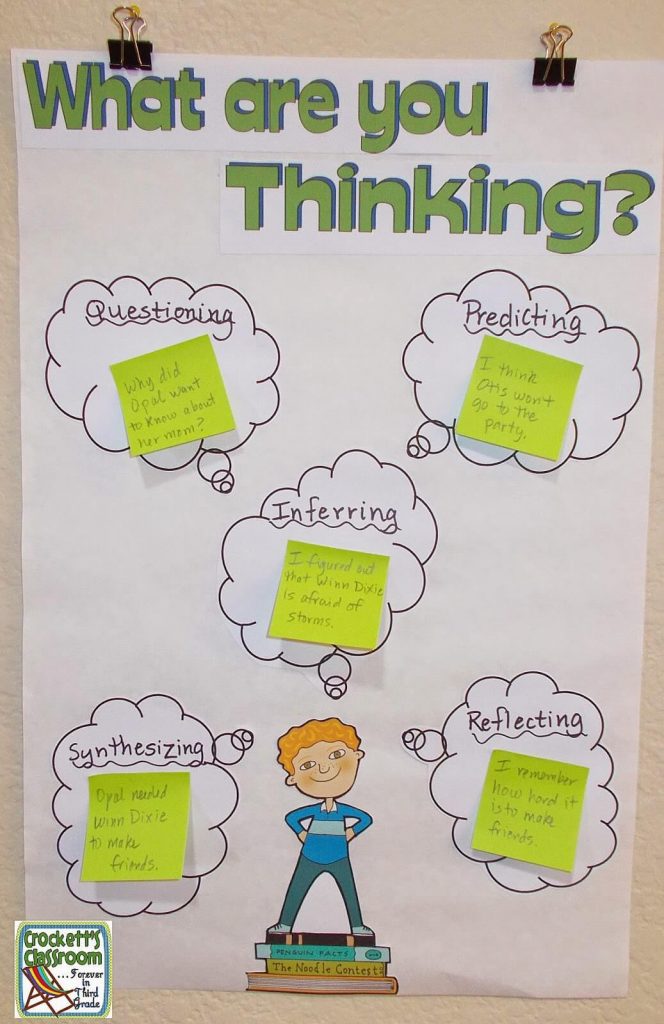 What are you
Thinking?
Questioning
Why did
Opal want
to know about
her mom?
Predicting
I think
Otis won't
go to the
party.
Inferring
I figured out
that Winn Dixie
is afraid of
storms.
Synthesizing
Opal needed
Winn Dixie
to make
friends.
Reflecting
I remember
how hard it
is to make
friends.
PENGUIN FACTS
The Noodle Contest
Crockett's
Classroom
...Forever
in
Third
Grade